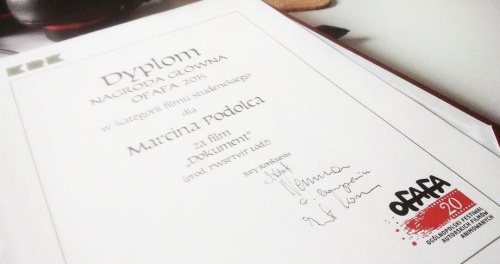 KRK
Dyplom
NAGRODA GŁÓWNA
OFAFA 2015
w kategorii filmu studenckiego
dla
Marcina Podolca
za film
„Dokument”
(prod. PWSFTviT Łódź)
Jury konkursu
OFAFA
20
OGÓLNOPOLSKI FESTIWAL
AUTORSKICH FILMÓW
ANIMOWANYCH